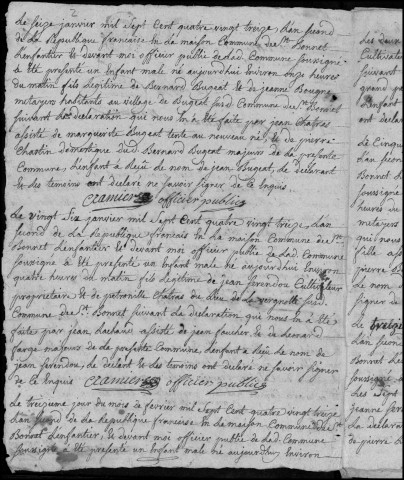 2
Le seize janvier mil sept cent quatre vingt treize, L'an second
de la République francaise En la maison Commune de St. Bonnet
L'enfantier et devant moi officier public de Lad. Commune soussigné
a été présenté un Enfant male né aujourdhui Environ onze heures
du matin fils Légitime de Bernard Bugeat et de jeanne Bougne
metayers habitants au village de Bugeat susd. Commune de St. Bonnet
suivant La declaration que nous En a été faite par jean Chafras
assisté de marguerite Bugeat tente au nouveau né et de pierre
Chartin domestique dud. Bernard Bugeat majeurs de la presente
Commune, L'enfant a Reçû le nom de jean Bugeat, le declarant
et les temoins ont déclaré ne savoir signer de ce Enquis.
Cramier officier public
Le vingt six janvier mil sept cent quatre vingt treize, L'an
second de La République francaise En la maison Commune de St.
Bonnet L'enfantier et devant moi officier public de Lad. Commune
soussigné a été présenté un Enfant male né aujourdhui Environ
quatre heures du matin fils Légitime de jean ferendou Cultivateur
proprietaire et de petronille Chafras du Lieu de La vergnotte susd.
Commune de St. Bonnet suivant La declaration que nous En a été
faite par jean Lachaud assisté de jean faucher et de Leonard
farge majeurs de La présente Commune, L'enfant a Reçû Le nom de
jean ferendou, Le declarant et Les temoins ont déclaré ne savoir signer
de ce Enquis Cramier officier public
Le treizieme jour du mois de fevrier mil sept Cent quatre vingt treize
L'an second de La République francaise En la maison Commune de St.
Bonnet L'enfantier, et devant moi officier public de Lad. Commune
soussigné a été présenté un Enfant male né aujourdhui Environ